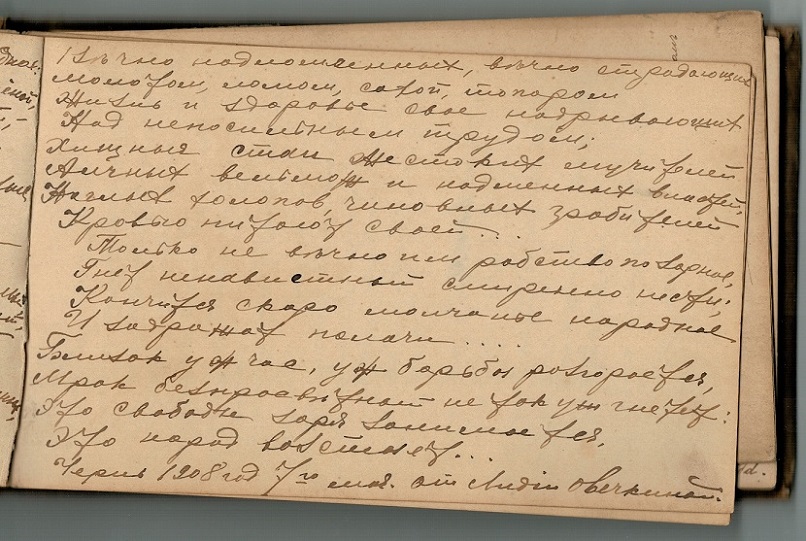 Вѣчно надломленных, вѣчно страдающих
Молотом, ломом, сохой, топором
Жизнь и здоровье свое надрывающих
Над непосильным трудом;
Хищныя стаи жестоких мучителей
Алчных вельмож и надменных властей,
Наглых холопов, чиновных грабителей
Кровью питают своей....
Только не вѣчно им рабство позорное,
Гнет ненавистный смиренно нести;
Кончится скоро молчанье народное
И задрожат палачи.....
Близок уж час, уж борьба разгорается,
Мрак безпросвѣтный не так уж гнетет:
Это свободы заря занимается,
Это народ возстает...
Чернь 1908 год 7го мая. от Лидии Овечкиной.